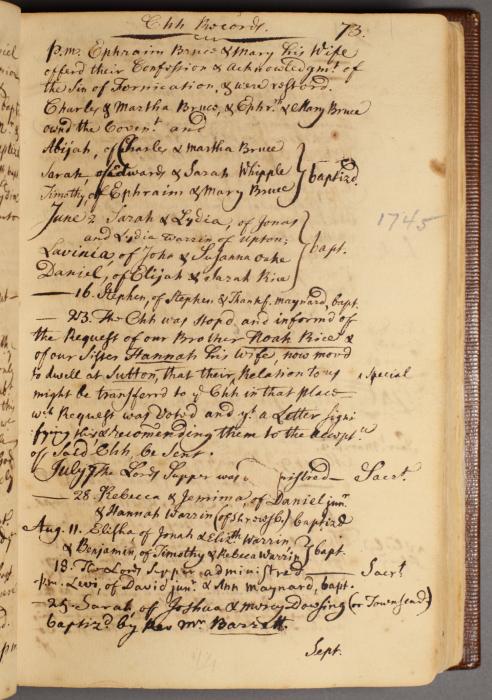 Chh Records. 73.
p.m. Ephraim Bruce & Mary his Wife
offerd their Confession & Acknowledgmt. of
the Sin of Fornication, & were restord.
Charles & Martha Bruce, & Ephrm. & Mary Bruce
ownd the Covent. and
Abijah, of Charles & Martha Bruce
Sarah, of Edwards & Sarah Whipple
Timothy, of Ephraim & Mary Bruce
baptizd.
June 2 Sarah & Lydia, of Jonas
and Lydia Warrin of Upton;
Lavinia of John & Susanna
Daniel, of Elijah & Sarah Rice
bapt.
1745
— 16. Stephen, of Stephen & Thankf. Maynard, bapt.
— 23. The Chh was stopd and informd of
the Request of our Brother Noah Rice &
of our Sister Hannah his Wife, now movd
to dwell at Sutton, that their Relation to us Special
might be transferd to ye Chh in that place —
wch Request was Voted and yt a Letter signi
fying this & recomending them to the
of said Chh be sent.
July 7 The Lords Supper was — Sacrt.
— 28. Rebecca & Jemima, of Daniel junr.
& Hannah Warrin (of Shrewsb.) baptizd
Aug. 11. Elisha of Jonah & Elizth Warrin
& Benjamin, of Timothy & Rebeca Warrin
bapt.
18. The Lords Supper administred — Sacrt
p.m. Levi, of David junr. & Ann Maynard, bapt.
— 25. Sarah, of Joshua & Mercy Dowsing (or Townsend)
baptizd by Rev Mr Barrett.
Sept.